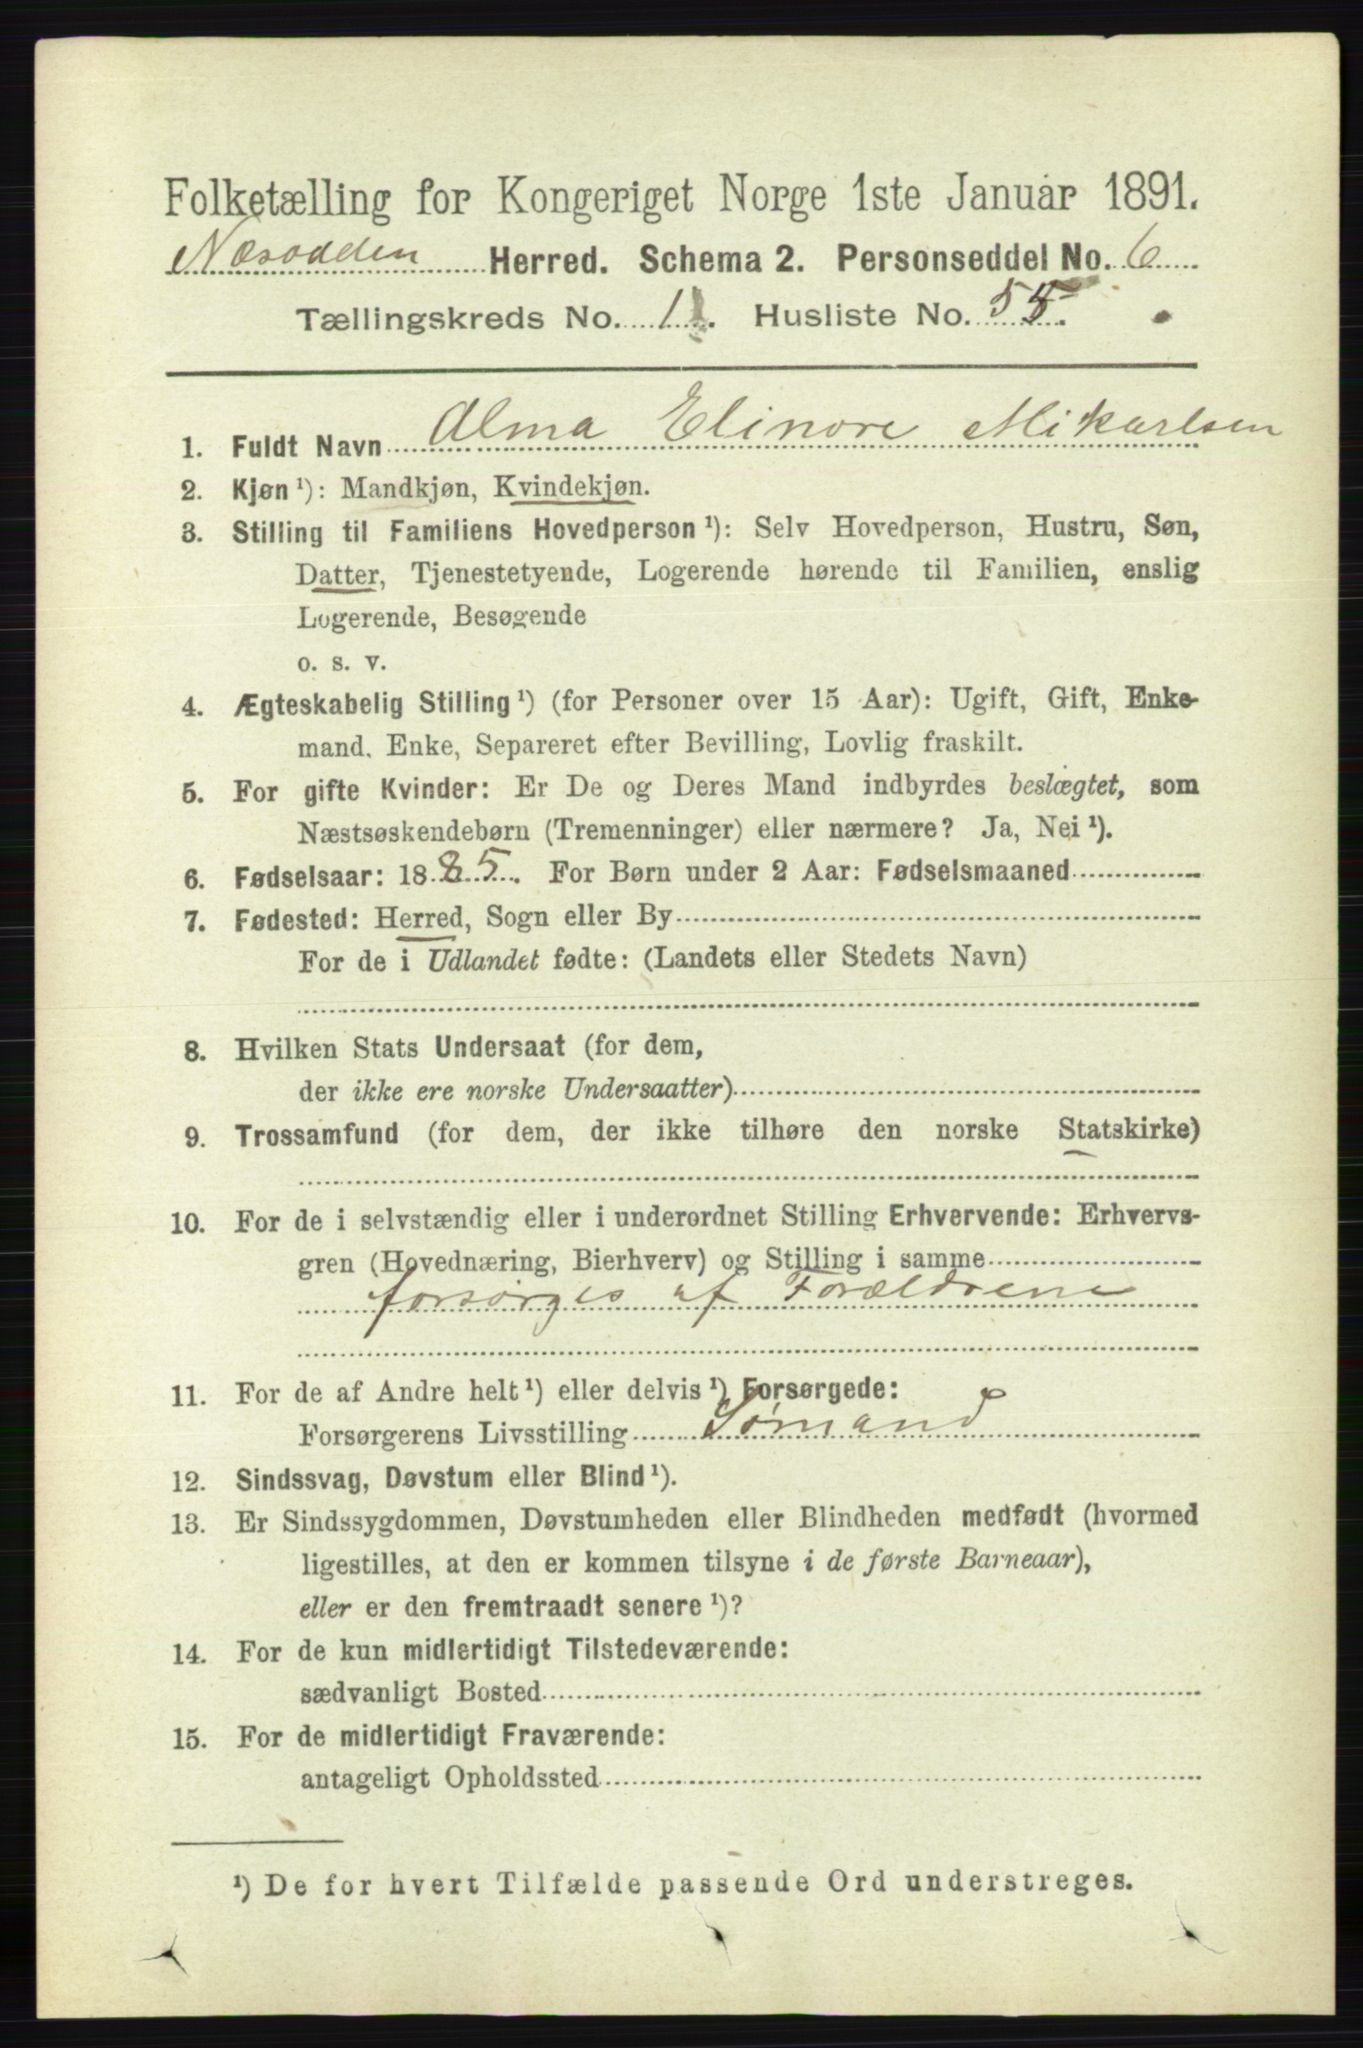 Folketælling for Kongeriget Norge 1ste Januar 1891.
Næsodden Herred. Schema 2. Personseddel No. 6
Tællingskreds No. 11. Husliste No. 55.
1. Fuldt Navn Alma Elinore Mikarlsen
2. Kjøn ¹): Mandkjøn, Kvindekjøn.
3. Stilling til Familiens Hovedperson ¹): Selv Hovedperson, Hustru, Søn,
Datter, Tjenestetyende, Logerende hørende til Familien, enslig
Logerende, Besøgende
o. s. v.
4. Ægteskabelig Stilling ¹) (for Personer over 15 Aar): Ugift, Gift, Enke-
mand, Enke, Separeret efter Bevilling, Lovlig fraskilt.
5. For gifte Kvinder: Er De og Deres Mand indbyrdes beslægtet, som
Næstsøskendebørn (Tremenninger) eller nærmere? Ja, Nei ¹).
6. Fødselsaar: 1885. For Børn under 2 Aar: Fødselsmaaned
7. Fødested: Herred, Sogn eller By
For de i Udlandet fødte: (Landets eller Stedets Navn)
8. Hvilken Stats Undersaat (for dem,
der ikke ere norske Undersaatter)
9. Trossamfund (for dem, der ikke tilhøre den norske Statskirke)
10. For de i selvstændig eller i underordnet Stilling Erhvervende: Erhvervs-
gren (Hovednæring, Bierhverv) og Stilling i samme
forsørges af Forældrene
11. For de af Andre helt ¹) eller delvis ¹) Forsørgede:
Forsørgerens Livsstilling Sømand
12. Sindssvag, Døvstum eller Blind ¹).
13. Er Sindssygdommen, Døvstumheden eller Blindheden medfødt (hvormed
ligestilles, at den er kommen tilsyne i de første Barneaar),
eller er den fremtraadt senere ¹)?
14. For de kun midlertidigt Tilstedeværende:
sædvanligt Bosted
15. For de midlertidigt Fraværende:
antageligt Opholdssted
¹) De for hvert Tilfælde passende Ord understreges.